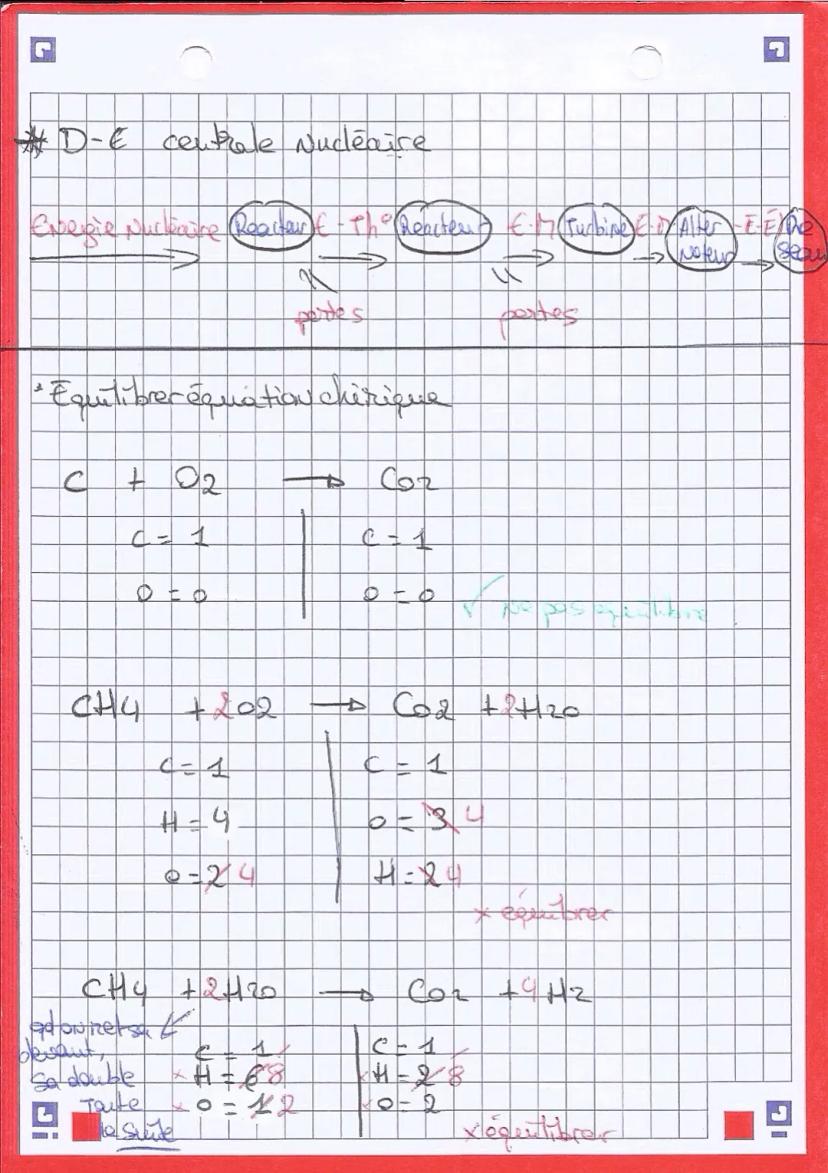 * D-E centrale Nucléaire
Energie Nucléaire Reacteur E-Th° Réacteur E.M Turbine E.M Alter nateur -E-É Re seau
pertes pertes
* Equilibrer équation chimique
C + O2 → Co2
C = 1 C = 1
O = 0 O = 0 ✓ Ne pas equilibre
CH4 + 2O2 → Co2 + 2H2O
C = 1 C = 1
H = 4 O = 3 4
O = 2 4 H = 2 4
× équilibrer
CH4 + 2H2O → Co2 + 4H2
qd on met sa
devant, C = 1 C = 1
sa double × H = 6 8 × H = 2 8
toute × O = 1 2 × O = 2
la suite × équilibrer